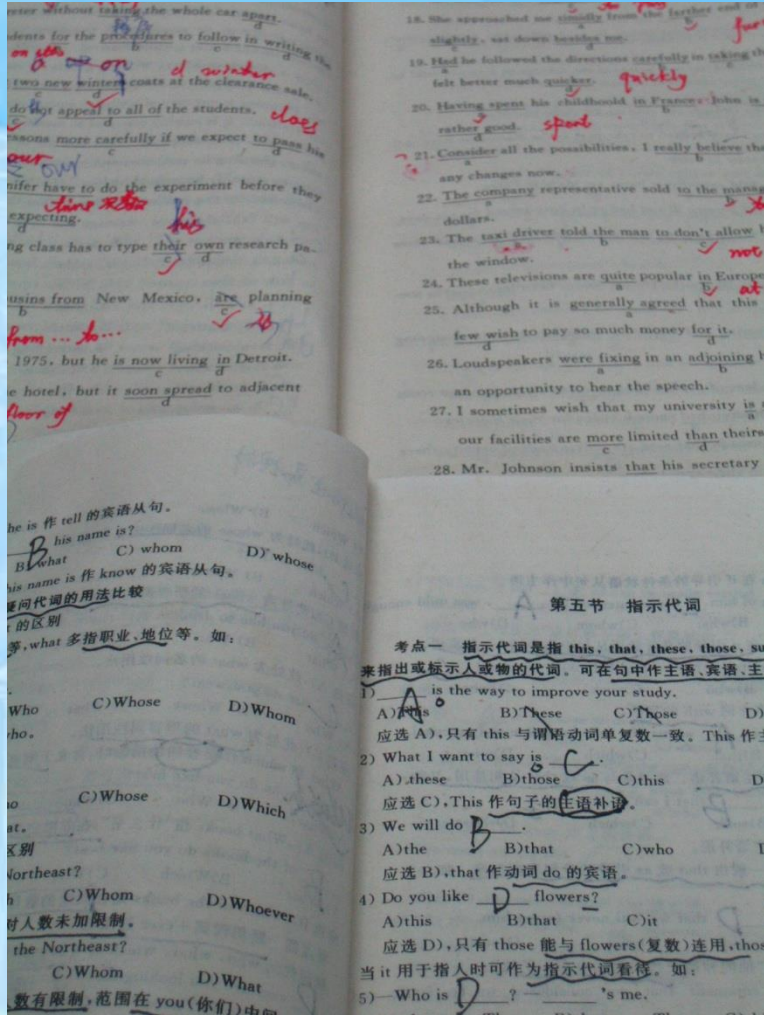 without taking the whole car apart.
a
d
dents for the procedures to follow in writing the
b
c
d
on
two new winter coats at the clearance sale.
c
d
d winter
do not appeal to all of the students.
d
does
more carefully if we expect to pass his
c
d
our
our
nifer have to do the experiment before they
c
expecting.
d
time 不可数
his
ng class has to type their own research pa-
c
d
usins from New Mexico, are planning
b
c
is
from ... to ...
1975, but he is now living in Detroit.
c
d
e hotel, but it soon spread to adjacent
d
floor of
18. She approached me timidly from the farther end of
a
b
slightly, sat down besides me.
c
d
19. Had he followed the directions carefully in taking th
a
b
felt better much quicker.
d
quickly
20. Having spent his childhoold in France, John is
a
b
rather good.
d
spent
21. Consider all the possibilities, I really believe the
a
b
any changes now.
22. The company representative sold to the manag
a
b
dollars.
23. The taxi driver told the man to don't allow h
a
b
c
the window.
not
24. These televisions are quite popular in Europe
a
b
at
25. Although it is generally agreed that this
a
few wish to pay so much money for it.
d
26. Loudspeakers were fixing in an adjoining h
a
b
an opportunity to hear the speech.
27. I sometimes wish that my university is
a
our facilities are more limited than theirs
c
d
28. Mr. Johnson insists that his secretary
he is 作 tell 的宾语从句。
B his name is?
B) what C) whom D) whose
his name is 作 know 的宾语从句。
疑问代词的用法比较
的区别
等,what 多指职业、地位等。如:
Who C)Whose D)Whom
ho。
C)Whose D)Which
at。
区别
Northeast?
C)Whom D)Whoever
对人数未加限制。
the Northeast?
C)Whom D)What
数有限制,范围在 you(你们)中间
第五节 指示代词
考点一 指示代词是指 this, that, these, those, su
来指出或标示人或物的代词。可在句中作主语、宾语、主
1) A is the way to improve your study.
A)This B)These C)Those D)
应选 A),只有 this 与谓语动词单复数一致。This 作主
2) What I want to say is C.
A).these B)those C)this D
应选 C),This 作句子的主语补语。
3) We will do B.
A)the B)that C)who
应选 B),that 作动词 do 的宾语。
4) Do you like D flowers?
A)this B)that C)it
应选 D),只有 those 能与 flowers(复数)连用,thos
当 it 用于指人时可作为指示代词看待。如:
5)—Who is D? — 's me.